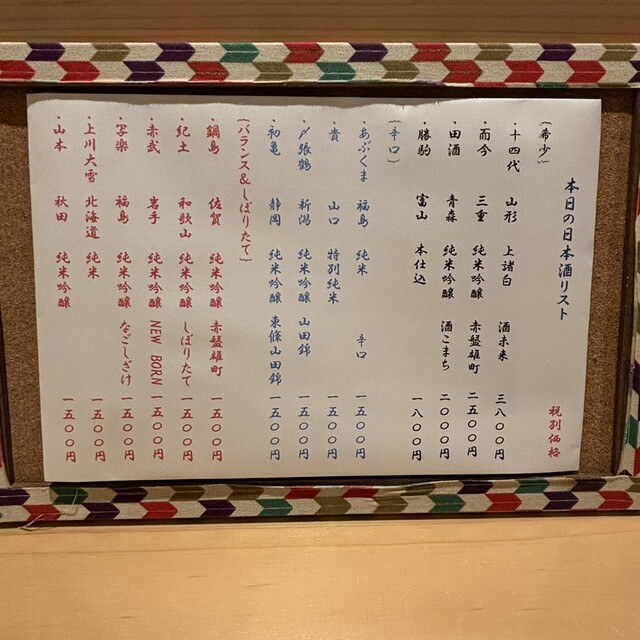 本日の日本酒リスト
税別価格
(希少)
・十四代 山形 上諸白 酒未来 三八〇〇円
・而今 三重 純米吟醸 赤盤雄町 二五〇〇円
・田酒 青森 純米吟醸 酒こまち 二〇〇〇円
・勝駒 富山 本仕込 一八〇〇円
(辛口)
・あぶくま 福島 純米 辛口 一五〇〇円
・貴 山口 特別純米 一五〇〇円
・〆張鶴 新潟 純米吟醸 山田錦 一五〇〇円
・初亀 静岡 純米吟醸 東條山田錦 一五〇〇円
(バランス&しぼりたて)
・鍋島 佐賀 純米吟醸 赤盤雄町 一五〇〇円
・紀土 和歌山 純米吟醸 しぼりたて 一五〇〇円
・赤武 岩手 純米吟醸 NEW BORN 一五〇〇円
・写楽 福島 純米吟醸 なごしざけ 一五〇〇円
・上川大雪 北海道 純米 一五〇〇円
・山本 秋田 純米吟醸 一五〇〇円